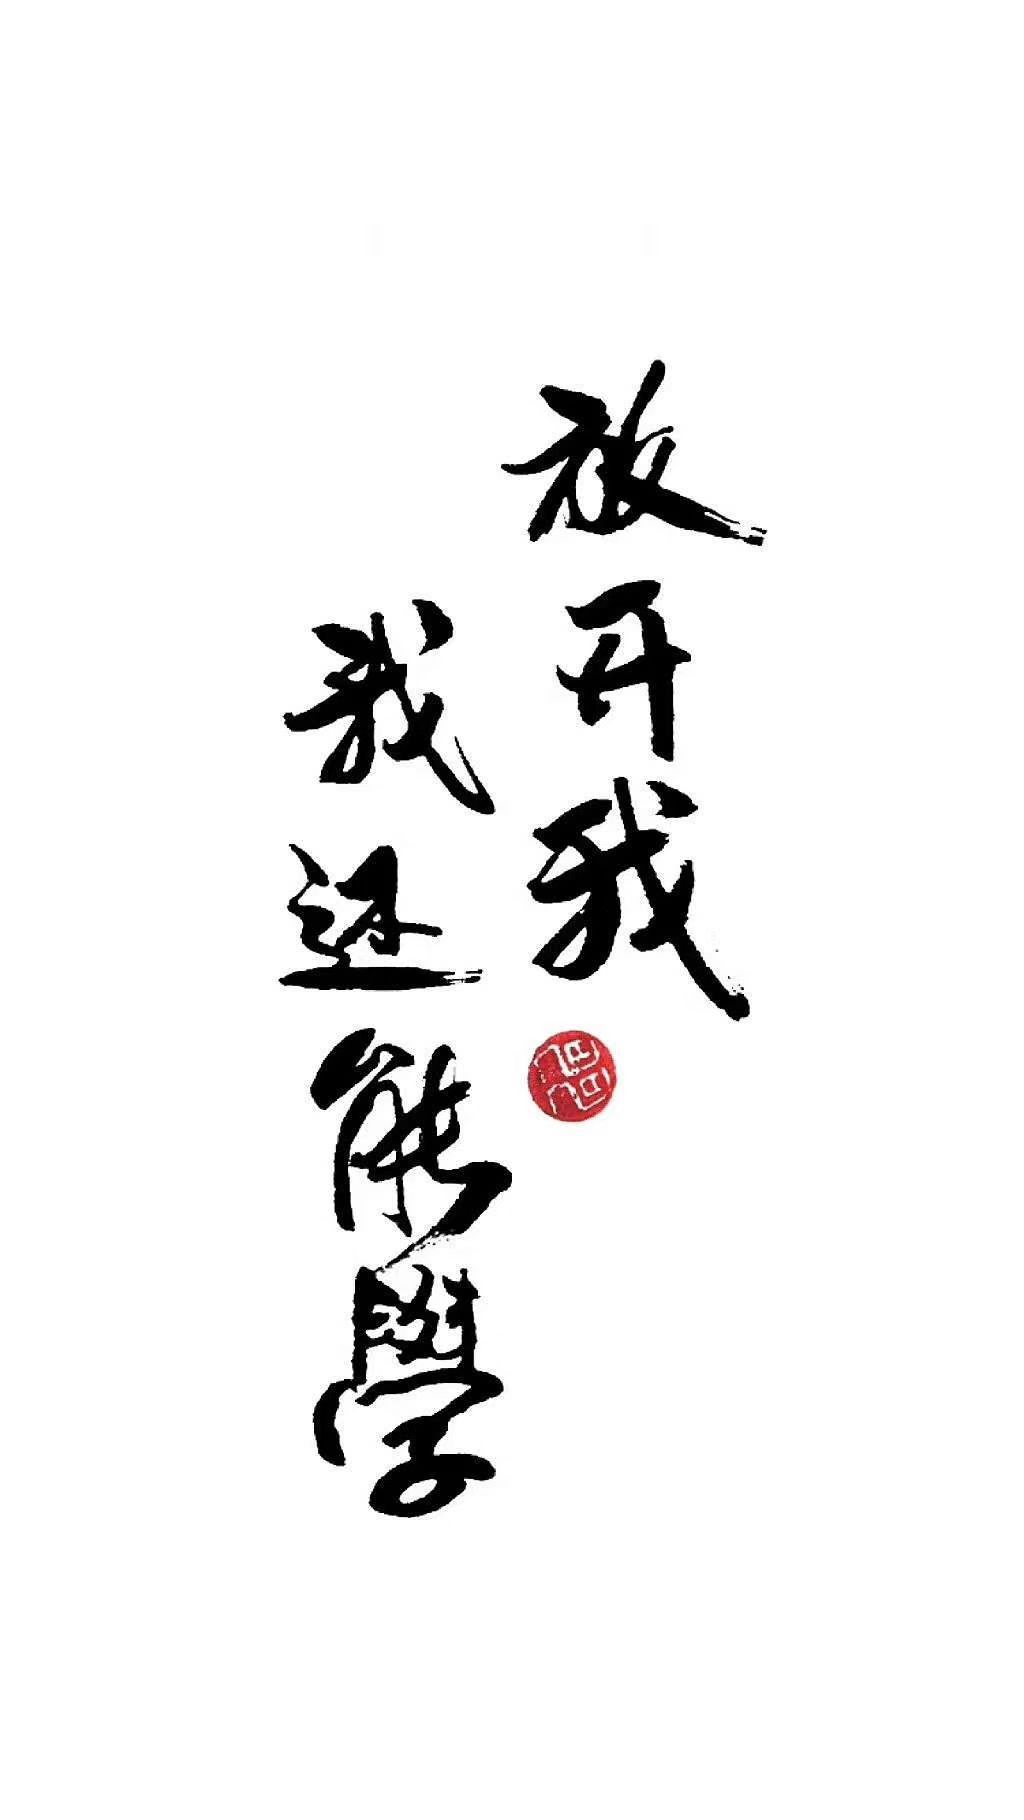 放开我
我还能學